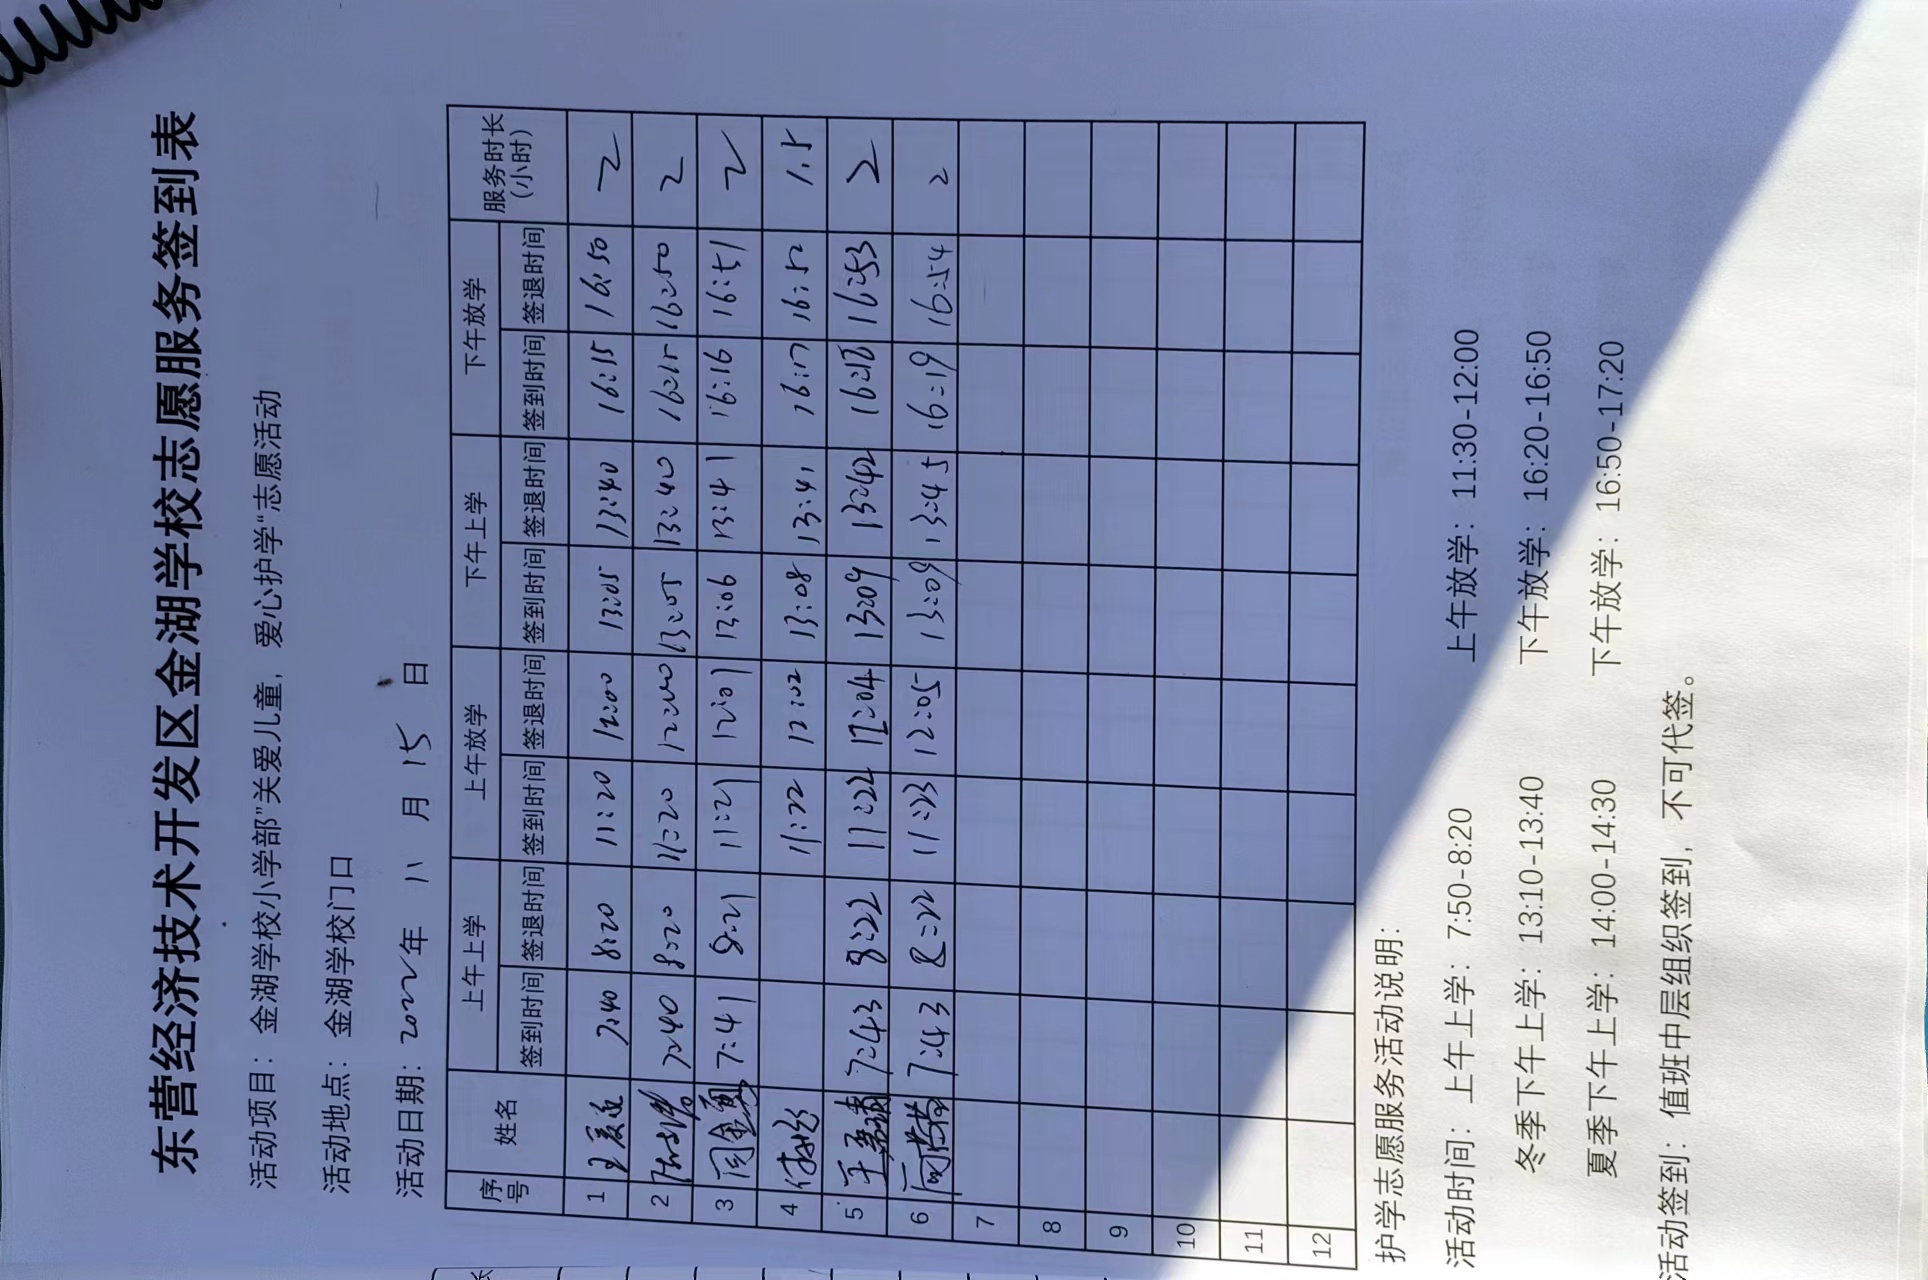 东营经济技术开发区金湖学校志愿服务签到表
活动项目：金湖学校小学部"关爱儿童，爱心护学"志愿活动
活动地点：金湖学校门口
活动日期：2022年 11 月 15 日
序号 姓名 上午上学 上午放学 下午上学 下午放学 服务时长(小时)
签到时间 签退时间 签到时间 签退时间 签到时间 签退时间 签到时间 签退时间
1 7:40 8:20 11:20 12:00 13:05 13:40 16:15 16:50 2
2 7:40 8:20 11:20 12:00 13:05 13:40 16:15 16:50 2
3 7:41 8:21 11:21 12:01 13:06 13:41 16:16 16:51 2
4 11:22 12:02 13:08 13:41 16:17 16:52 1.5
5 7:43 8:22 11:22 12:04 13:09 13:42 16:18 16:53 2
6 7:43 8:22 11:23 12:05 13:09 13:45 16:19 16:54 2
7
8
9
10
11
12
护学志愿服务活动说明：
活动时间：上午上学：7:50-8:20 上午放学：11:30-12:00
冬季下午上学：13:10-13:40 下午放学：16:20-16:50
夏季下午上学：14:00-14:30 下午放学：16:50-17:20
活动签到：值班中层组织签到，不可代签。